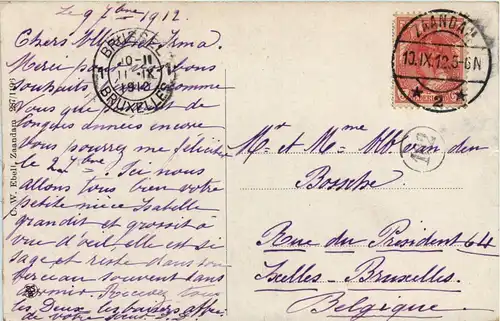 Le 9 7bre 1912.
Chers Albert et Irma.
Merci pour vos bons
souhaits
vous que de
longues années encore
vous pourrez me féliciter
le 2 7bre. Ici nous
allons tous bien votre
petite nièce Isabelle
grandit et grossit à
vue d'œil, elle est si
sage et reste dans son
berceau souvent sans
dormir. Recevez tous
les Deux les baisers
de votre sœur
C. W. Ebel, Zaandam
BRUSSEL
10-11
11-IX
1912
BRUXELLES
ZAANDAM
10.IX.12.5-6N
2
132
Mr et Mme Alb van den
Bossche
Rue du Président 64
Ixelles - Bruxelles.
Belgique.